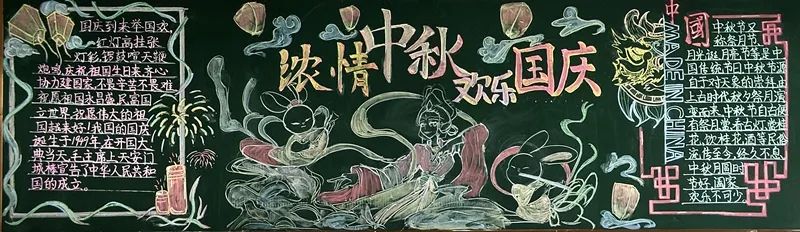 国庆到来举国欢,
红灯高挂张
灯彩,锣鼓喧天鞭
炮鸣,庆祝祖国生日来,齐心
协力建国家,不畏辛苦不畏难
祝愿祖国永昌盛,民富国
立世界,祝愿伟大的祖
国越来好!我国的国庆
诞生于1949年,在开国大
典当天,毛主席上天安门
城楼宣告了中华人民共和
国的成立。
浓情中秋
欢乐国庆
中國
MADE IN CHINA
中秋节又
称祭月节
月光诞、月亮节等,是中
国传统节日中秋节源
自于对天象的崇拜,由
上古时代秋夕祭月演
变而来,中秋节自古便
有祭月、赏
花、饮桂花酒等民俗
流传至今,经久不息
中秋月圆时
节好,阖家
欢乐不可少。